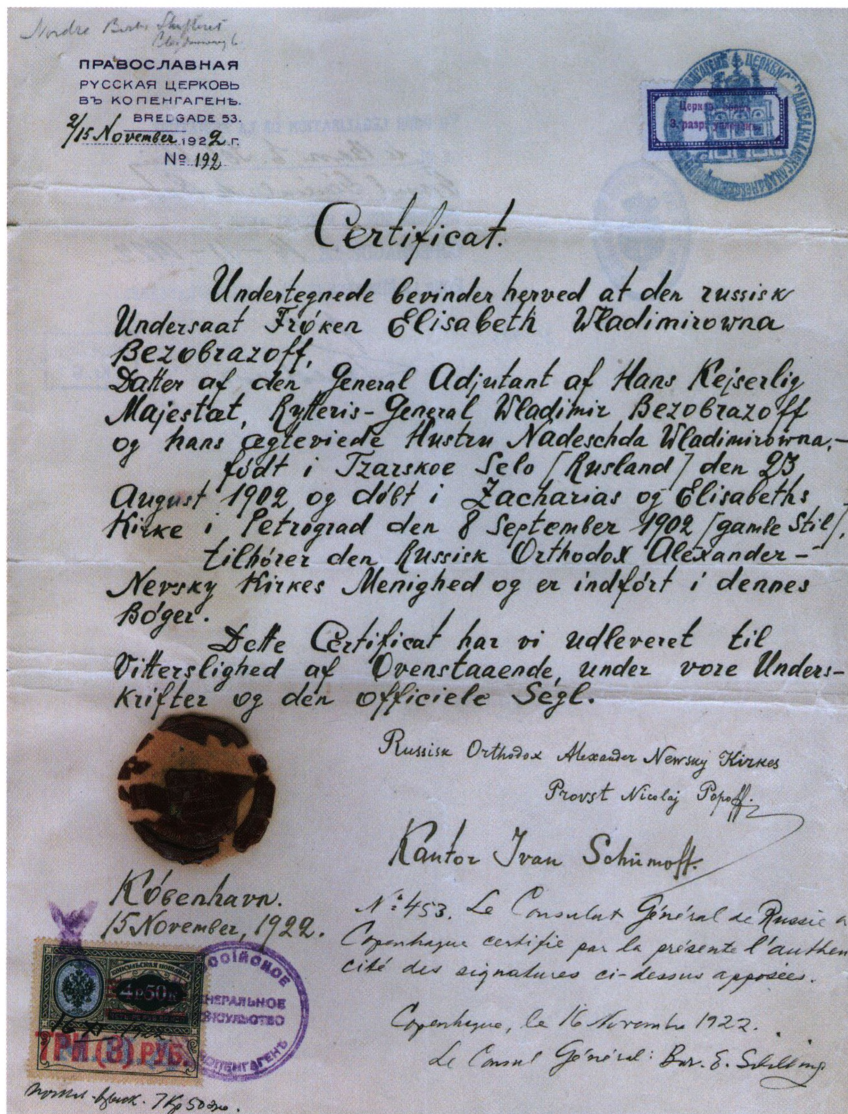 Nordre Birks Skifteret
ПРАВОСЛАВНАЯ
РУССКАЯ ЦЕРКОВЬ
ВЪ КОПЕНГАГЕНѢ.
BREDGADE 53.
2/15 November 1922 г.
№ 192
Certificat.
Undertegnede bevinder herved at den russisk
Undersaat Frøken Elisabeth Wladimirowna
Bezobrazoff,
Datter af den General Adjutant af Hans Kejserlig
Majestæt, Rytteris-General Wladimir Bezobrazoff
og hans ægteviede Hustru Nadeschda Wladimirowna,-
født i Tzarskoe Selo [Rusland] den 23
August 1902 og døbt i Zacharias og Elisabeths
Kirke i Petrograd den 8 September 1902 [gamle Stil],
tilhörer den Russisk Orthodox Alexander-
Nevsky Kirkes Menighed og er indført i dennes
Bøger.
Dette Certificat har vi udleveret til
Vitterslighed af Ovenstaaende, under vore Unders-
krifter og den officiele Segl.
Russisk Orthodox Alexander Newsky Kirkes
Provst Nicolaj Popoff.
Kantor Ivan Schumoff.
København.
15 November, 1922.
№ 453. Le Consulat Général de Russie a
Copenhague certifie par la présente l'authen
cité des signatures ci-dessus apposées.
Copenhague, le 16 Novembre 1922.
Le Consul Général: Bar. E. Schilling
4 р 50 к
ТРИ (3) РУБ.
РОССІЙСКОЕ
ГЕНЕРАЛЬНОЕ
КОНСУЛЬСТВО
КОПЕНГАГЕНЪ
7 Kr 50 øre.